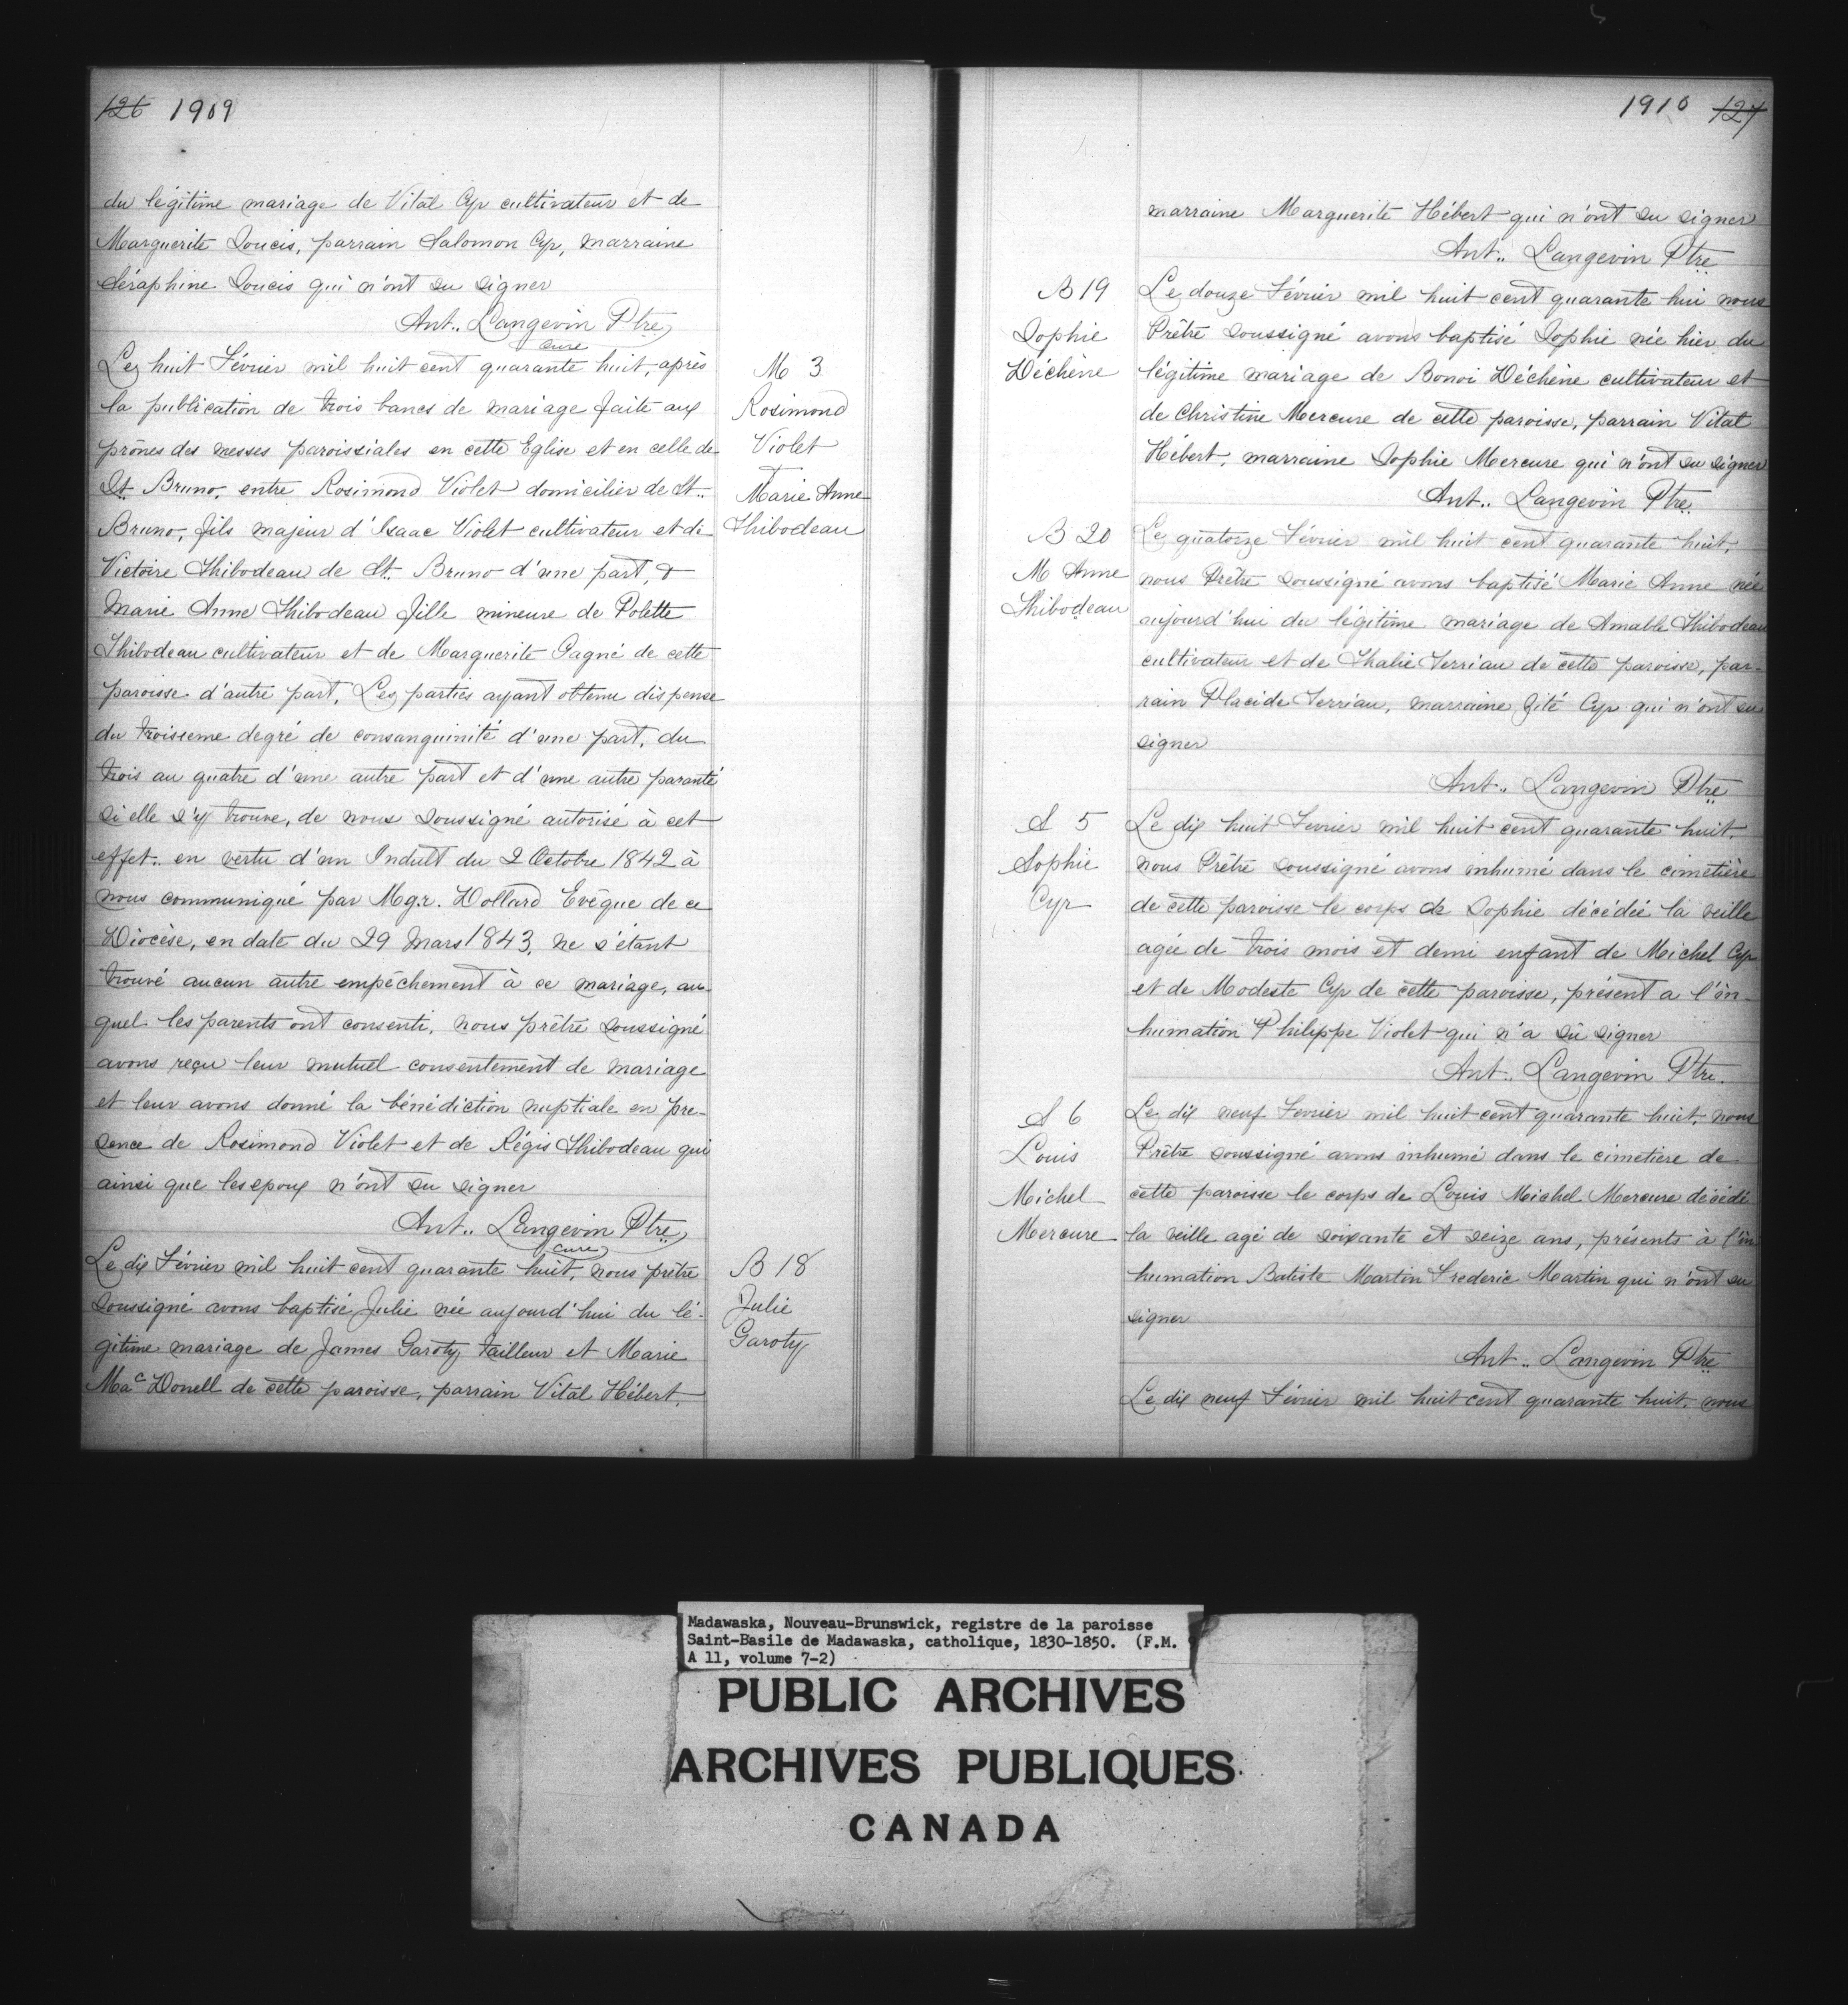 126 1909
du légitime mariage de Vital Cyr cultivateur et de
Marguerite Soucis, parrain Salomon Cyr, marraine
Séraphine Soucis qui n'ont su signer
Ant.. Langevin Ptre
cure
Le huit Février mil huit cent quarante huit, après
la publication de trois bancs de mariage faite aux
prônes des messes paroissiales en cette Eglise et en celle de
St. Bruno, entre Rosimond Violet domicilier de St..
Bruno, fils majeur d'Isaac Violet cultivateur et de
Victoire Thibodeau de St. Bruno d'une part, &
Marie Anne Thibodeau fille mineure de Polette
Thibodeau cultivateur et de Marguerite Gagné de cette
paroisse d'autre part, Les parties ayant obtenu dispense
du troisieme degré de consanguinité d'une part, du
trois au quatre d'une autre part et d'une autre paranté
si elle s'y trouve, de nous soussigné autorisé à cet
effet.. en vertu d'un Indult du 2 Octobre 1842 à
nous communiqué par Mg.r. Dollard Evêque de ce
Diocèse, en date du 29 Mars 1843, ne s'étant
trouvé aucun autre empêchement à ce mariage, au-
quel les parents ont consenti, nous prêtre soussigné
avons reçu leur mutuel consentement de mariage
et leur avons donné la bénédiction nuptiale en pre-
sence de Rosimond Violet et de Régis Thibodeau qui
ainsi que les epoux n'ont su signer
Ant.. Langevin Ptre
cure
Le dix Février mil huit cent quarante huit, nous prêtre
soussigné avons baptisé Julie née aujourd'hui du lé-
gitime mariage de James Garoty tailleur et Marie
Mac Donell de cette paroisse, parrain Vital Hébert,
M 3
Rosimond
Violet
Marie Anne
Thibodeau
B 18
Julie
Garoty
1910 127
marraine Marguerite Hébert qui n'ont su signer
Ant.. Langevin Ptre
B 19
Sophie
Déchène
Le douze Février mil huit cent quarante hui nous
Prêtre soussigné avons baptisé Sophie née hier du
légitime mariage de Bonoi Déchène cultivateur et
de Christine Mercure de cette paroisse, parrain Vital
Hébert, marraine Sophie Mercure qui n'ont su signer
Ant.. Langevin Ptre
B 20
M Anne
Thibodeau
Le quatorze Février mil huit cent quarante huit,
nous Prêtre soussigné avons baptisé Marie Anne née
aujourd'hui du légitime mariage de Amable Thibodeau
cultivateur et de Thalie Terriau de cette paroisse, par-
rain Placide Terriau, marraine Zité Cyr qui n'ont su
signer
Ant.. Langevin Ptre
S 5
Sophie
Cyr
Le dix huit Fevrier mil huit cent quarante huit,
nous Prêtre soussigné avons inhumé dans le cimetière
de cette paroisse le corps de Sophie décédée la veille
agée de trois mois et demi enfant de Michel Cyr
et de Modeste Cyr de cette paroisse, présent a l'in-
humation Philippe Violet qui n'a sû signer
Ant.. Langevin Ptre.
S 6
Louis
Michel
Mercure
Le dix neuf Fevrier mil huit cent quarante huit, nous
Prêtre soussigné avons inhumé dans le cimetiere de
cette paroisse le corps de Louis Michel Mercure décédé
la veille agé de soixante et seize ans, présents à l'in
humation Batiste Martin Frederic Martin qui n'ont su
signer
Ant.. Langevin Ptre
Le dix neuf Février mil huit cent quarante huit, nous
Madawaska, Nouveau-Brunswick, registre de la paroisse
Saint-Basile de Madawaska, catholique, 1830-1850. (F.M.
A 11, volume 7-2)
PUBLIC ARCHIVES
ARCHIVES PUBLIQUES
CANADA